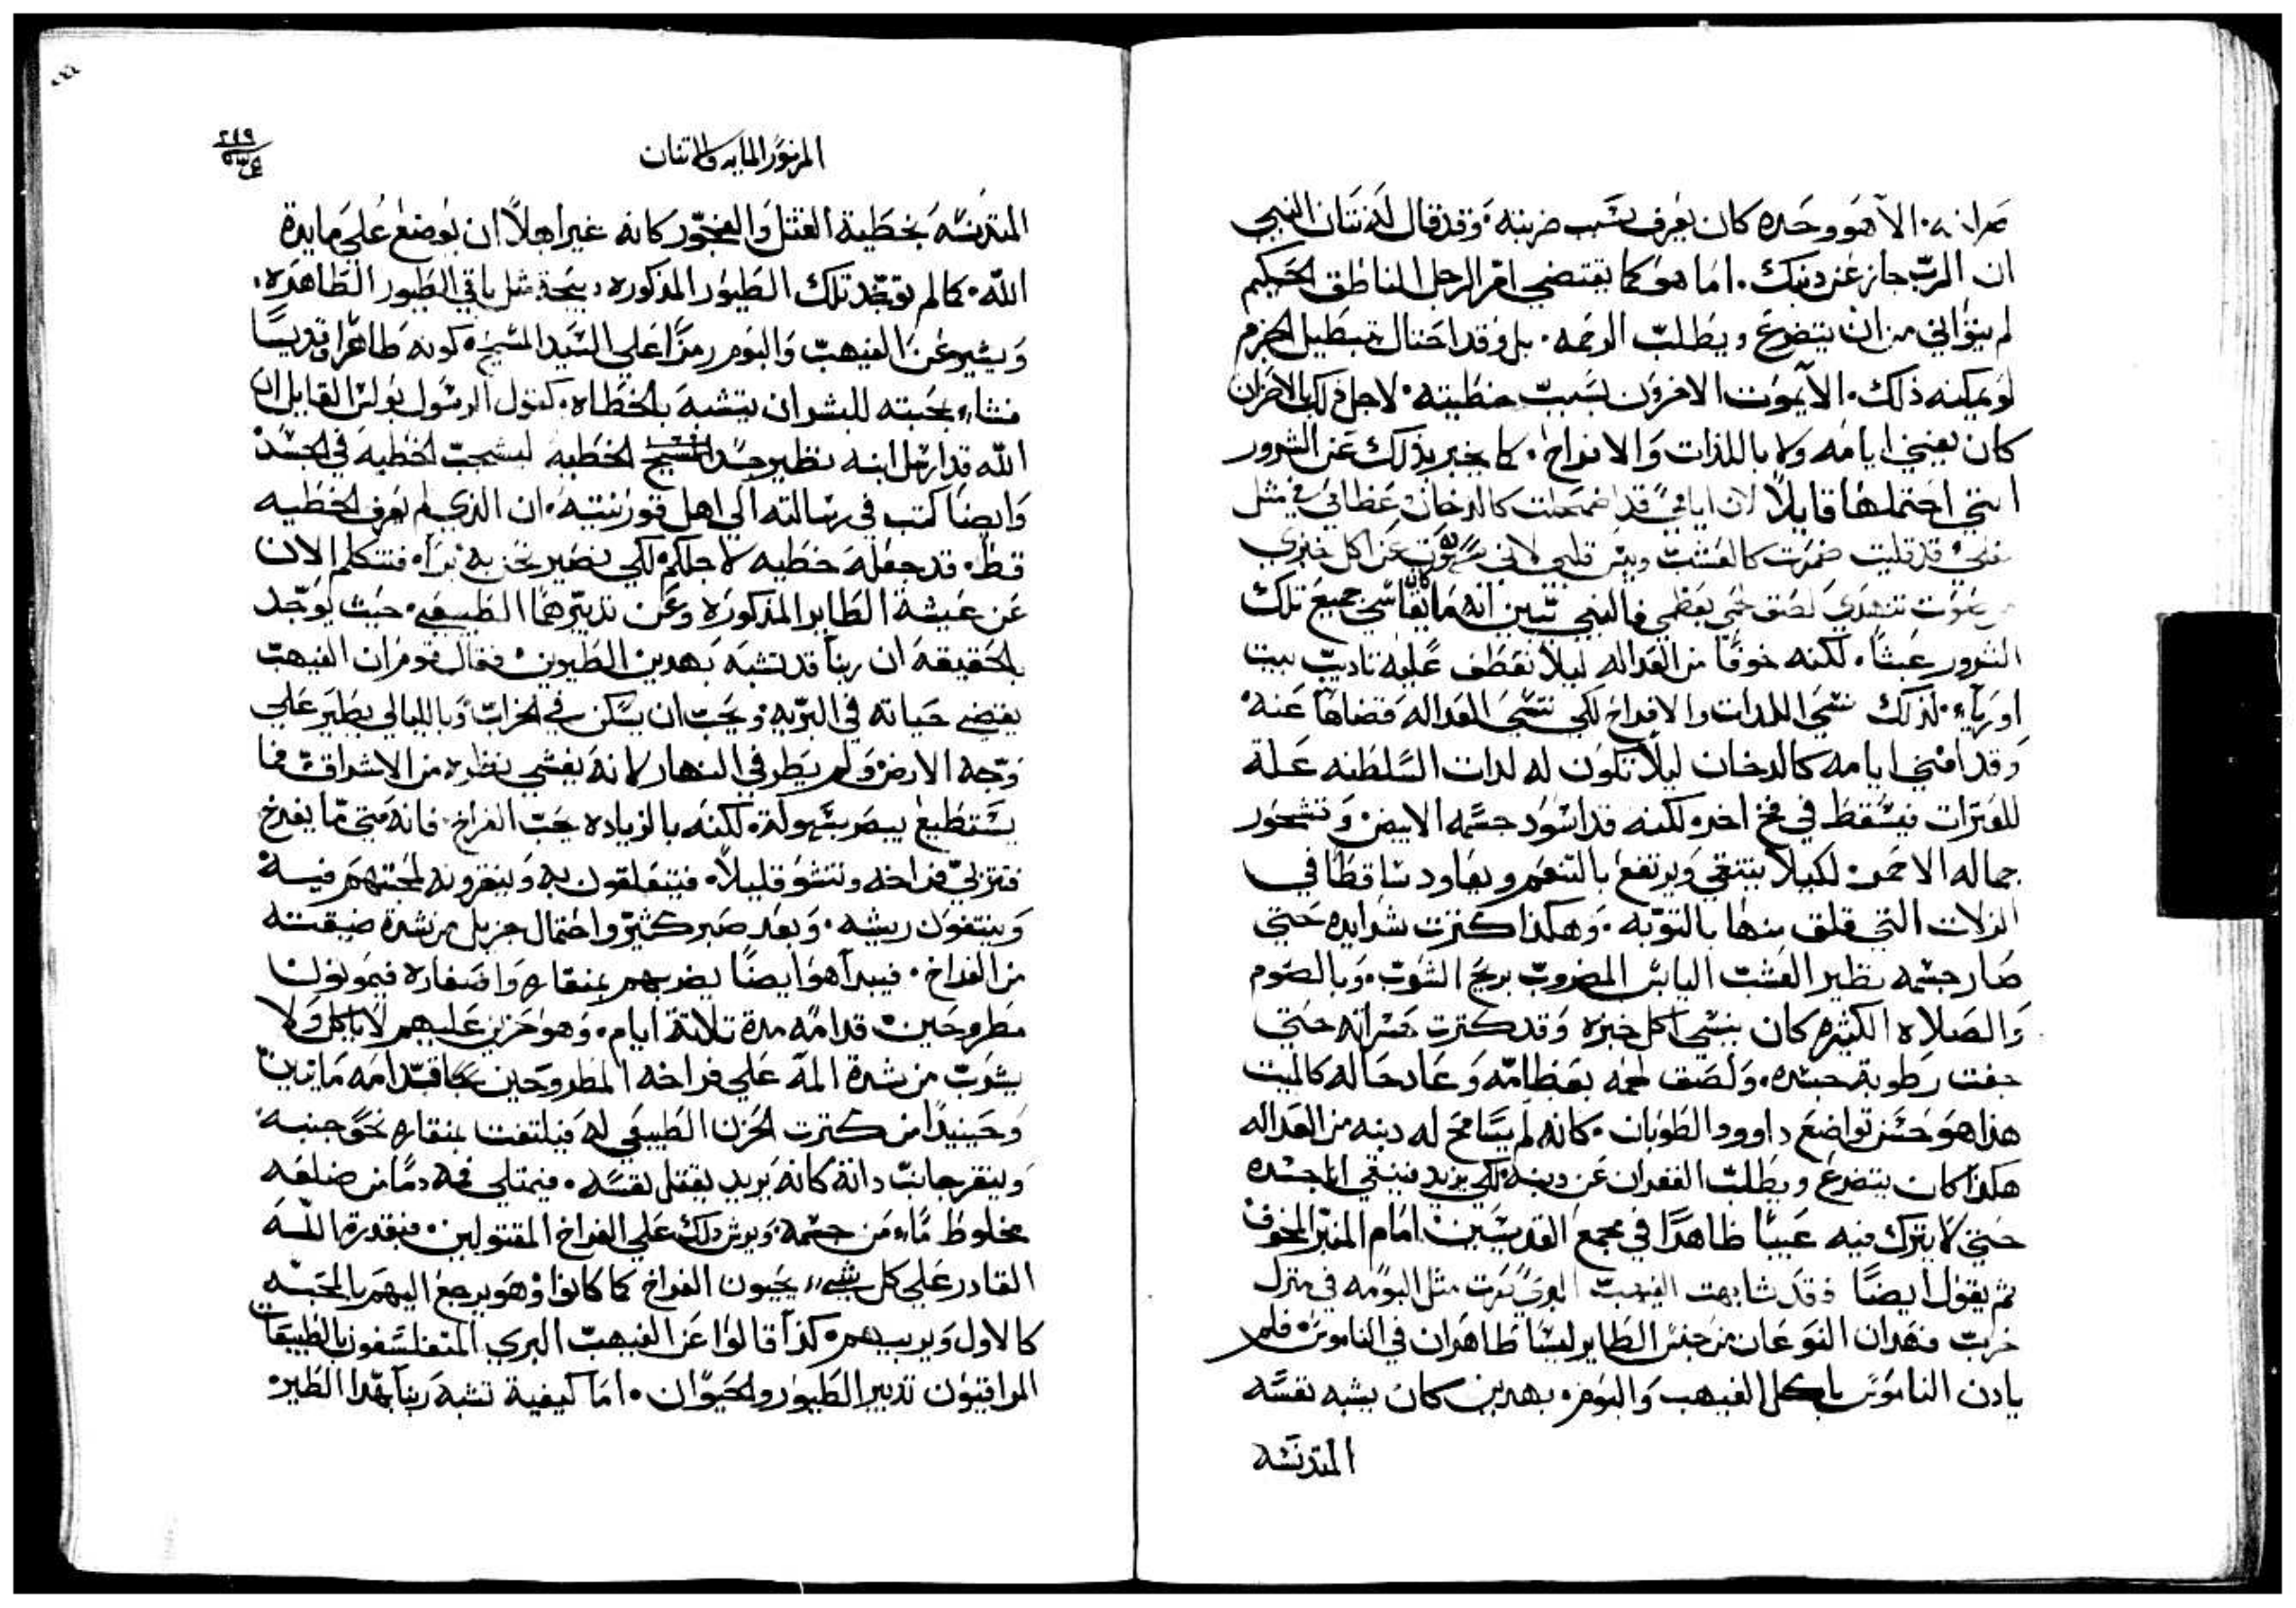 الا هو وحده كان يعرف بسبب ضربته وقد قال له نتان النبي
ان الرب جاز عن دنبك. اما هو كما يقتضي امر الرجل الناطق الحكيم
لم يتواني من ان يتضرع ويطلب الرحمه. بل وقد احتال تبطيل الجزم
لو يمكنه ذلك. الا يموت الاخرون بسبب خطيته. لاجل ذلك الاحزان
كان يفني ايامه ولا باللذات والافراح. كما يخبر بذلك عن الشرور
التي احتملها قايلاً لان ايامي قد اضمحلت كالدخان وعظامي مثل
قد قليت ضمرت كالعشب ويبس قلبي لاني سهوت عن اكل خبزي
من صوت تنهدي لصق لحمي بعظمي فالنبي تبين انه ما يقاسي جميع تلك
الشرور عبثاً. لكنه خوفاً من العداله ليلا تقطف عليه تاديب بيت
اورياء. لذلك نسي اللدات والافراح لكي تنسي العداله قضاها عنه
وقد افني ايامه كالدخان ليلا تكون له لدات السلطنه علة
للعترات فيسقط في فخ اخر. لكنه قد اسود جسمه الابيض وتشحور
جماله الاحمر. لكيلا ينتقي ويرتفع بالتنعم ويعاود ساقطا في
الزلات التي قلق منها بالتوبه. وهكذا كترت شدايده حتي
صار جسمه نظير العشب اليابس المضروب بريح الشوب. وبالصوم
والصلاه الكثيره كان ينسي اكل خبزه وقد كترت حسراته حتي
جفت رطوبة جسده. ولصق لحمه بعظامه وعاد حاله كالميت
هذا هو حسن تواضع داوود الطوبان. كانه لم يسامح له دينه من العداله
هكذا كان يتضرع ويطلب الغفران عن دينه لكي يزيد فينقي اثام جسده
حتي لا يترك فيه عيباً ظاهرًا في مجمع القديسين امام المنبر المخوف
ثم يقول ايضًا فقد شابهت الغيهب البري صرت مثل البومه في منزل
خرب فهدان النوعان من جنس الطاير ليسا طاهران في الناموس. فلم
يادن الناموس باكل الغيهب والبوم. بهدين كان يشبه نفسه
المتدنسه
المزمور المايه والاتنان
٢٤٩
المتدنسه بخطية القتل والفجور كانه غير اهلاً ان يوضع علي مايدة
الله. كما لم توجد تلك الطيور المذكوره دبيحة مثل باقي الطيور الطاهره.
ويشير عن الغيهب والبوم رمزًا علي السيد المسيح. كونه طاهرًا قديسًا
فشاء بمحبته للبشر ان يتشبه بالخطاه. كقول الرسول بولس القايل ان
الله قد ارسل ابنه نظير جسد الخطيه ليشجب الخطيه في الجسد
وايضًا كتب في رسالته الي اهل قورنتيه. ان الذي لم يعرف الخطيه
قط. قد جعله خطيه لاجلكم لكي نصير نحن به برًا. فنتكلم الان
عن عيشة الطاير المذكوره وعن تدبيرهما الطبيعي. حيث يوجد
بالحقيقه ان ربنا قد تشبه بهدين الطيرين. فقال قوم ان الغيهب
يقضي حياته في البريه ويحب ان يسكن في الخراب وبالليالي يطير علي
وجه الارض ولم يطير في النهار لانه يغشي نظره من الاشراق. فما
يستطيع يبصر بسهولة. لكنه بالزياده يحب الفراخ. فانه متي ما يفرخ
فتربي فراخه وتنشو قليلاً. فيتعلقون به وينقرونه لمحبتهم فيه
وينتفون ريشه. وبعد صبر كثير واحتمال جزيل من شدة ضيقته
من الفراخ. فيبدا هو ايضًا يضربهم بمنقاره واضفاره فيموتون
مطروحين قدامه مدة تلاتة ايام. وهو حزين عليهم لا ياكل ولا
يشرب من شدة المه علي فراخه المطروحين قدامه مايتين
وحينيدًا من كترت الحزن الطبيعي له فيلتفت بمنقاره نحو جنبه
وينقر جانب داته كانه يريد يقتل نفسه. فيمتلي فمه دمًا من ضلعه
مخلوط ماء من جسمه. ويرش دلك علي الفراخ المقتولين. فبقدرة الله
القادر علي كل شيء يحيون الفراخ كما كانوا وهو يرجع اليهم بالمحبه
كالاول ويربيهم. كذا قالوا عن الغيهب البري المتفلسفون بالطبيعات
المراقبون تدبير الطيور والحيوان. اما كيفية تشبه ربنا بهدا الطير.